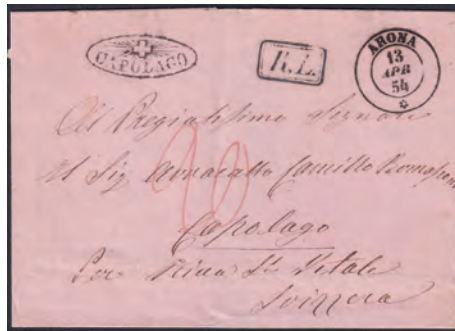 CAPOLAGO
R.L.
ARONA
13
APR
54
Al Pregiatissimo Signore
Il Sig Avvocatto Camillo Bernasconi
20
Capolago
Per Riva St. Vitale
Svizzera